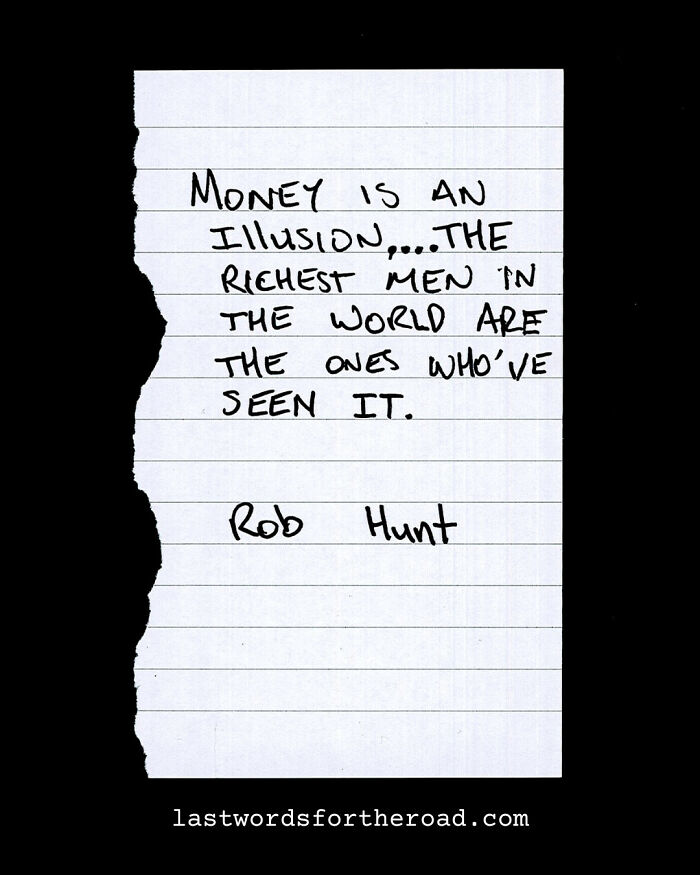 MONEY IS AN
IllUSION,....THE
RICHEST MEN IN
THE WORLD ARE
THE ONES WHO'VE
SEEN IT.
Rob Hunt
lastwordsfortheroad.com